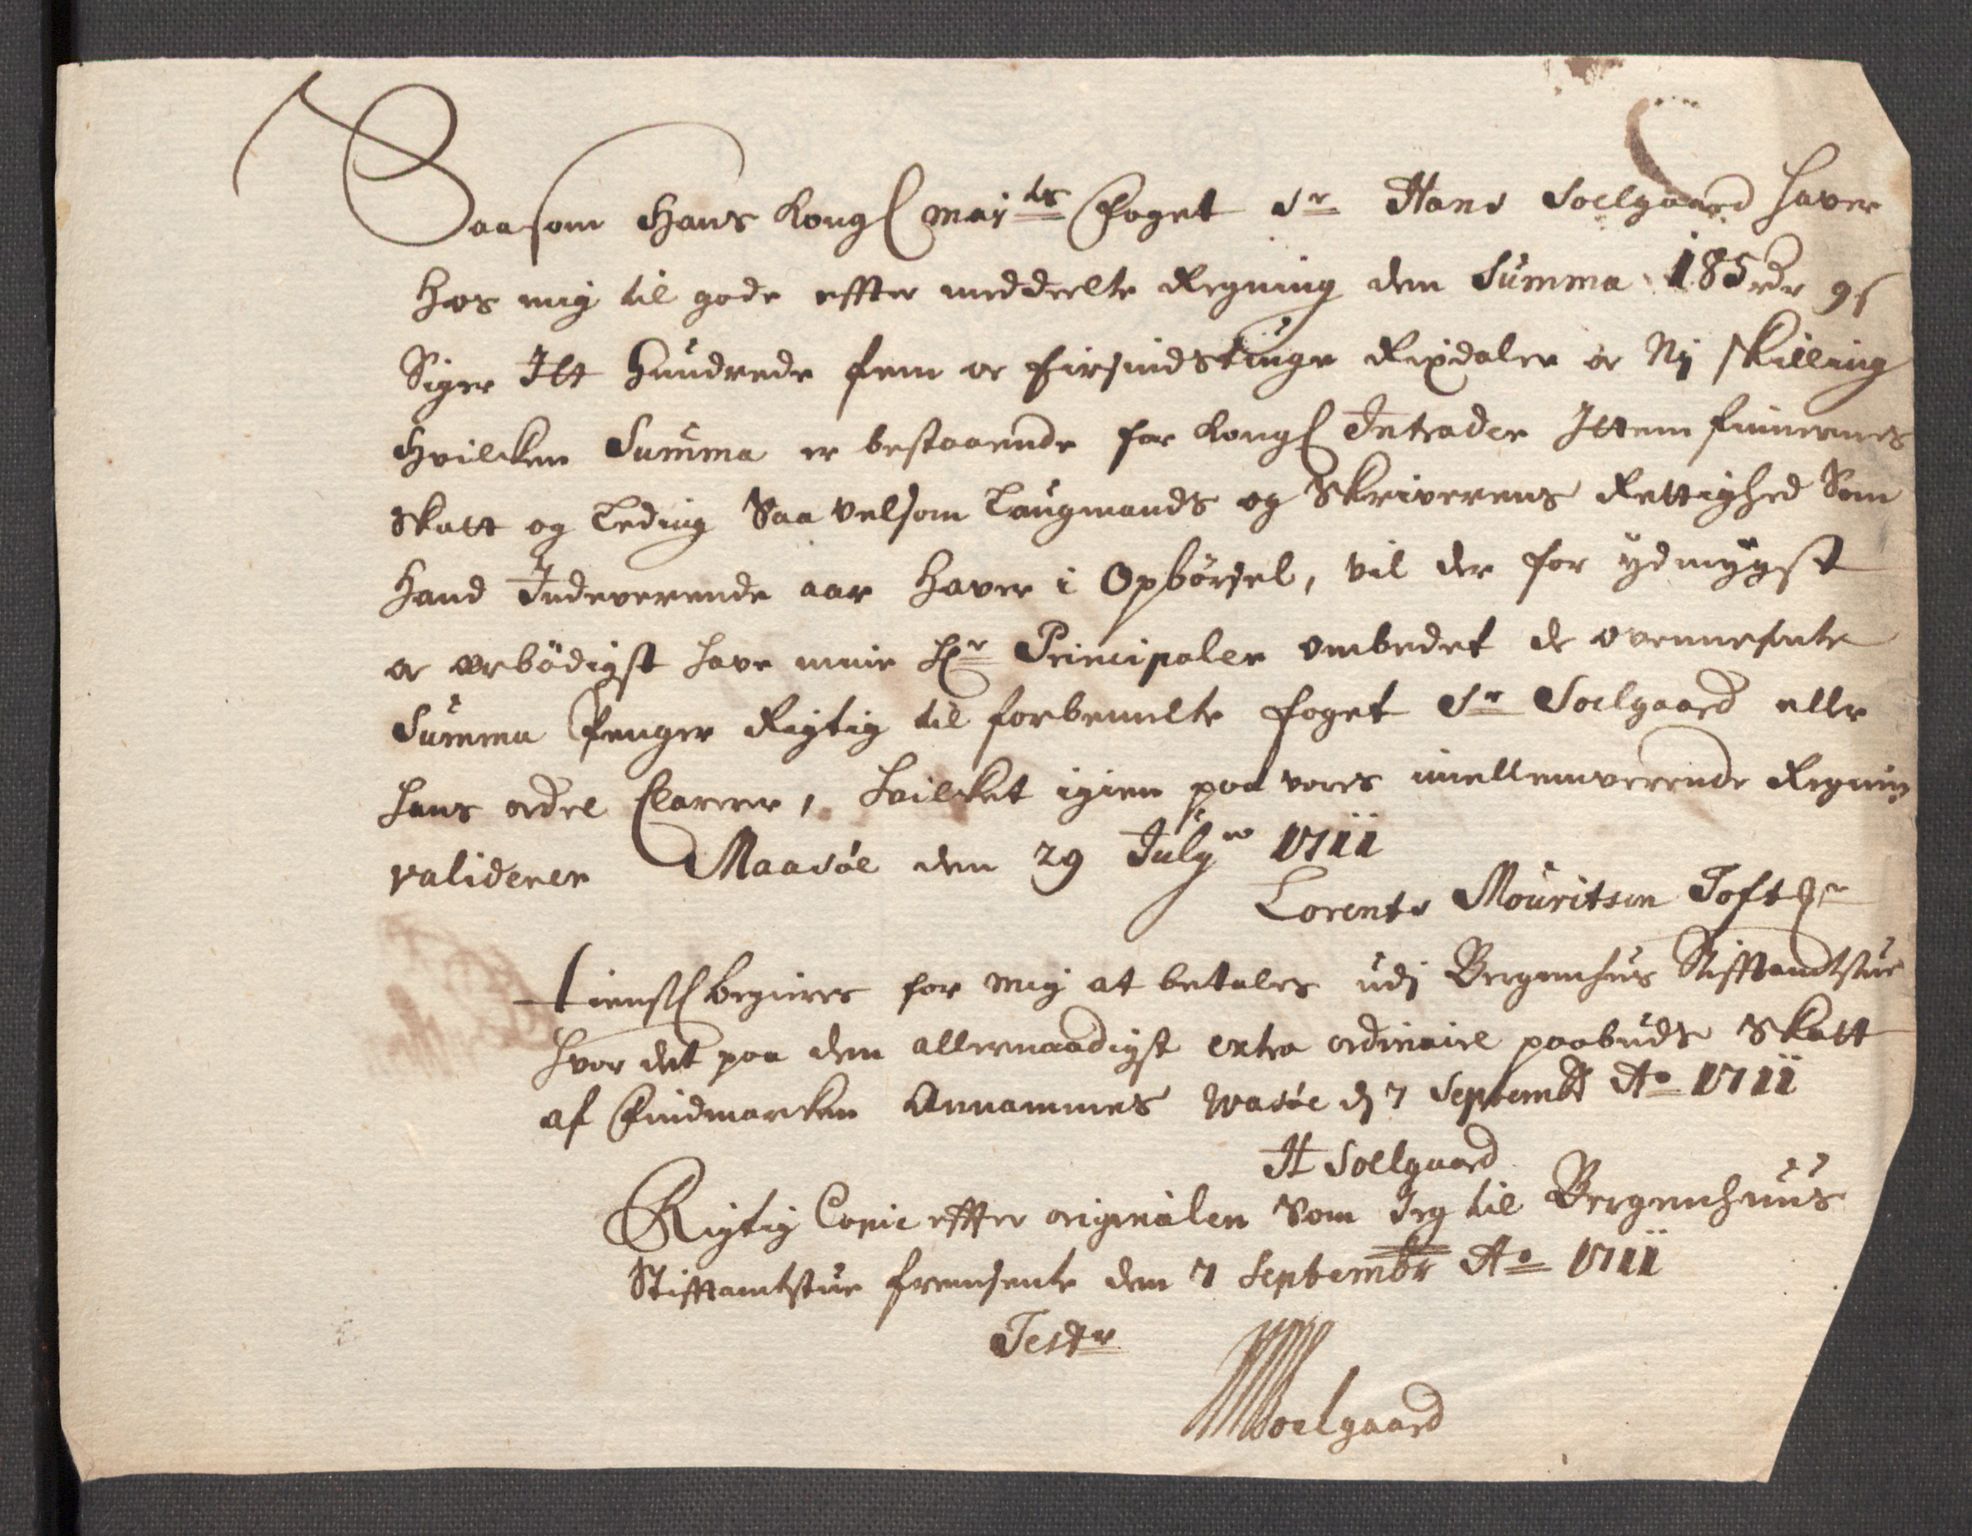 Saasom Hans Kongl Maÿts Foget Sr Hans Soelgaard haver
hos mig til gode effter meddeelte Regning den Summa 185 rdr 9 s
Siger Itt Hundrede fem oc firsindstiuge Rixdaler oc Nij skilling
Hvilcken Summa er bestaaende for Kongl Intrader Ittem finnernes
skatt og Leding Saa velsom Laugmands og Skriverens Rettighed Som
Hand Indeverende aar haver i Opbörsel, vil der for ydmygst
oc ærbödigst have mine Hr Principaler ombedet de ovennefnte
Summa Penger Rigtig til forbemelte foget Sr Soelgaard eller
hans ordre Clarerer, hvilcket igien paa vores imellemverende Regning
validerer Maasöe den 29 July 1711
Lorents Mouritsen Toft
tienstl begieres for mig at betales udj Bergenhus Stifftamtstue
hvor det paa den allernaadigst extra ordinaire paabudt Skatt
af Findmarcken Annammes Wasöe dj 7 Septembr Ao 1711
H Soelgaard
Rigtig Copie effter originalen Som Jeg til Bergenhuus
Stifftamtstue fremsente den 7 Septembr Ao 1711
Tester
HSoelgaard